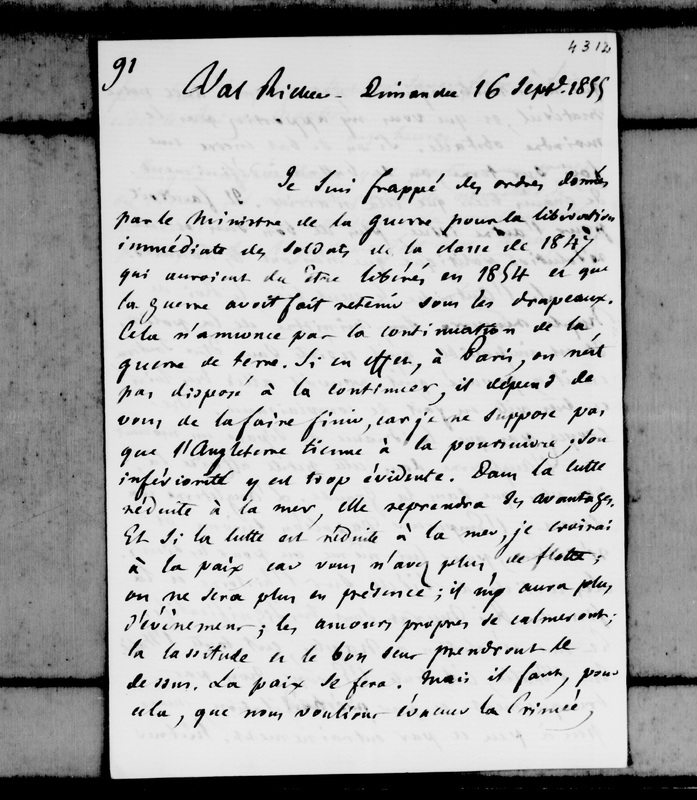 91
4312
Val Richer - Dimanche 16 Sept. 1855
Je suis frappé des ordres donnés
par le Ministre de la guerre pour la libération
immédiate des soldats de la classe de 1847
qui auroient du être libérés en 1854 et que
la guerre avoit fait retenir sous les drapeaux.
Cela n'annonce pas la continuation de la
guerre de terre. Si en effet, à Paris, on n'est
pas disposé à la continuer, il dépend de
vous de la faire finir, car je ne suppose pas
que l'Angleterre tienne à la poursuivre; son
infériorité y est trop évidente. Dans la lutte
réduite à la mer, elle reprendra des avantages.
Et si la lutte est réduite à la mer, je croirai
à la paix car vous n'avez plus de flotte;
on ne sera plus en présence; il n'y aura plus
d'événement; les amours propres se calmeront;
la lassitude et le bon sens prendront le
dessus. La paix se fera. Mais il faut, pour
cela, que nous voulions évacuer la Crimée,